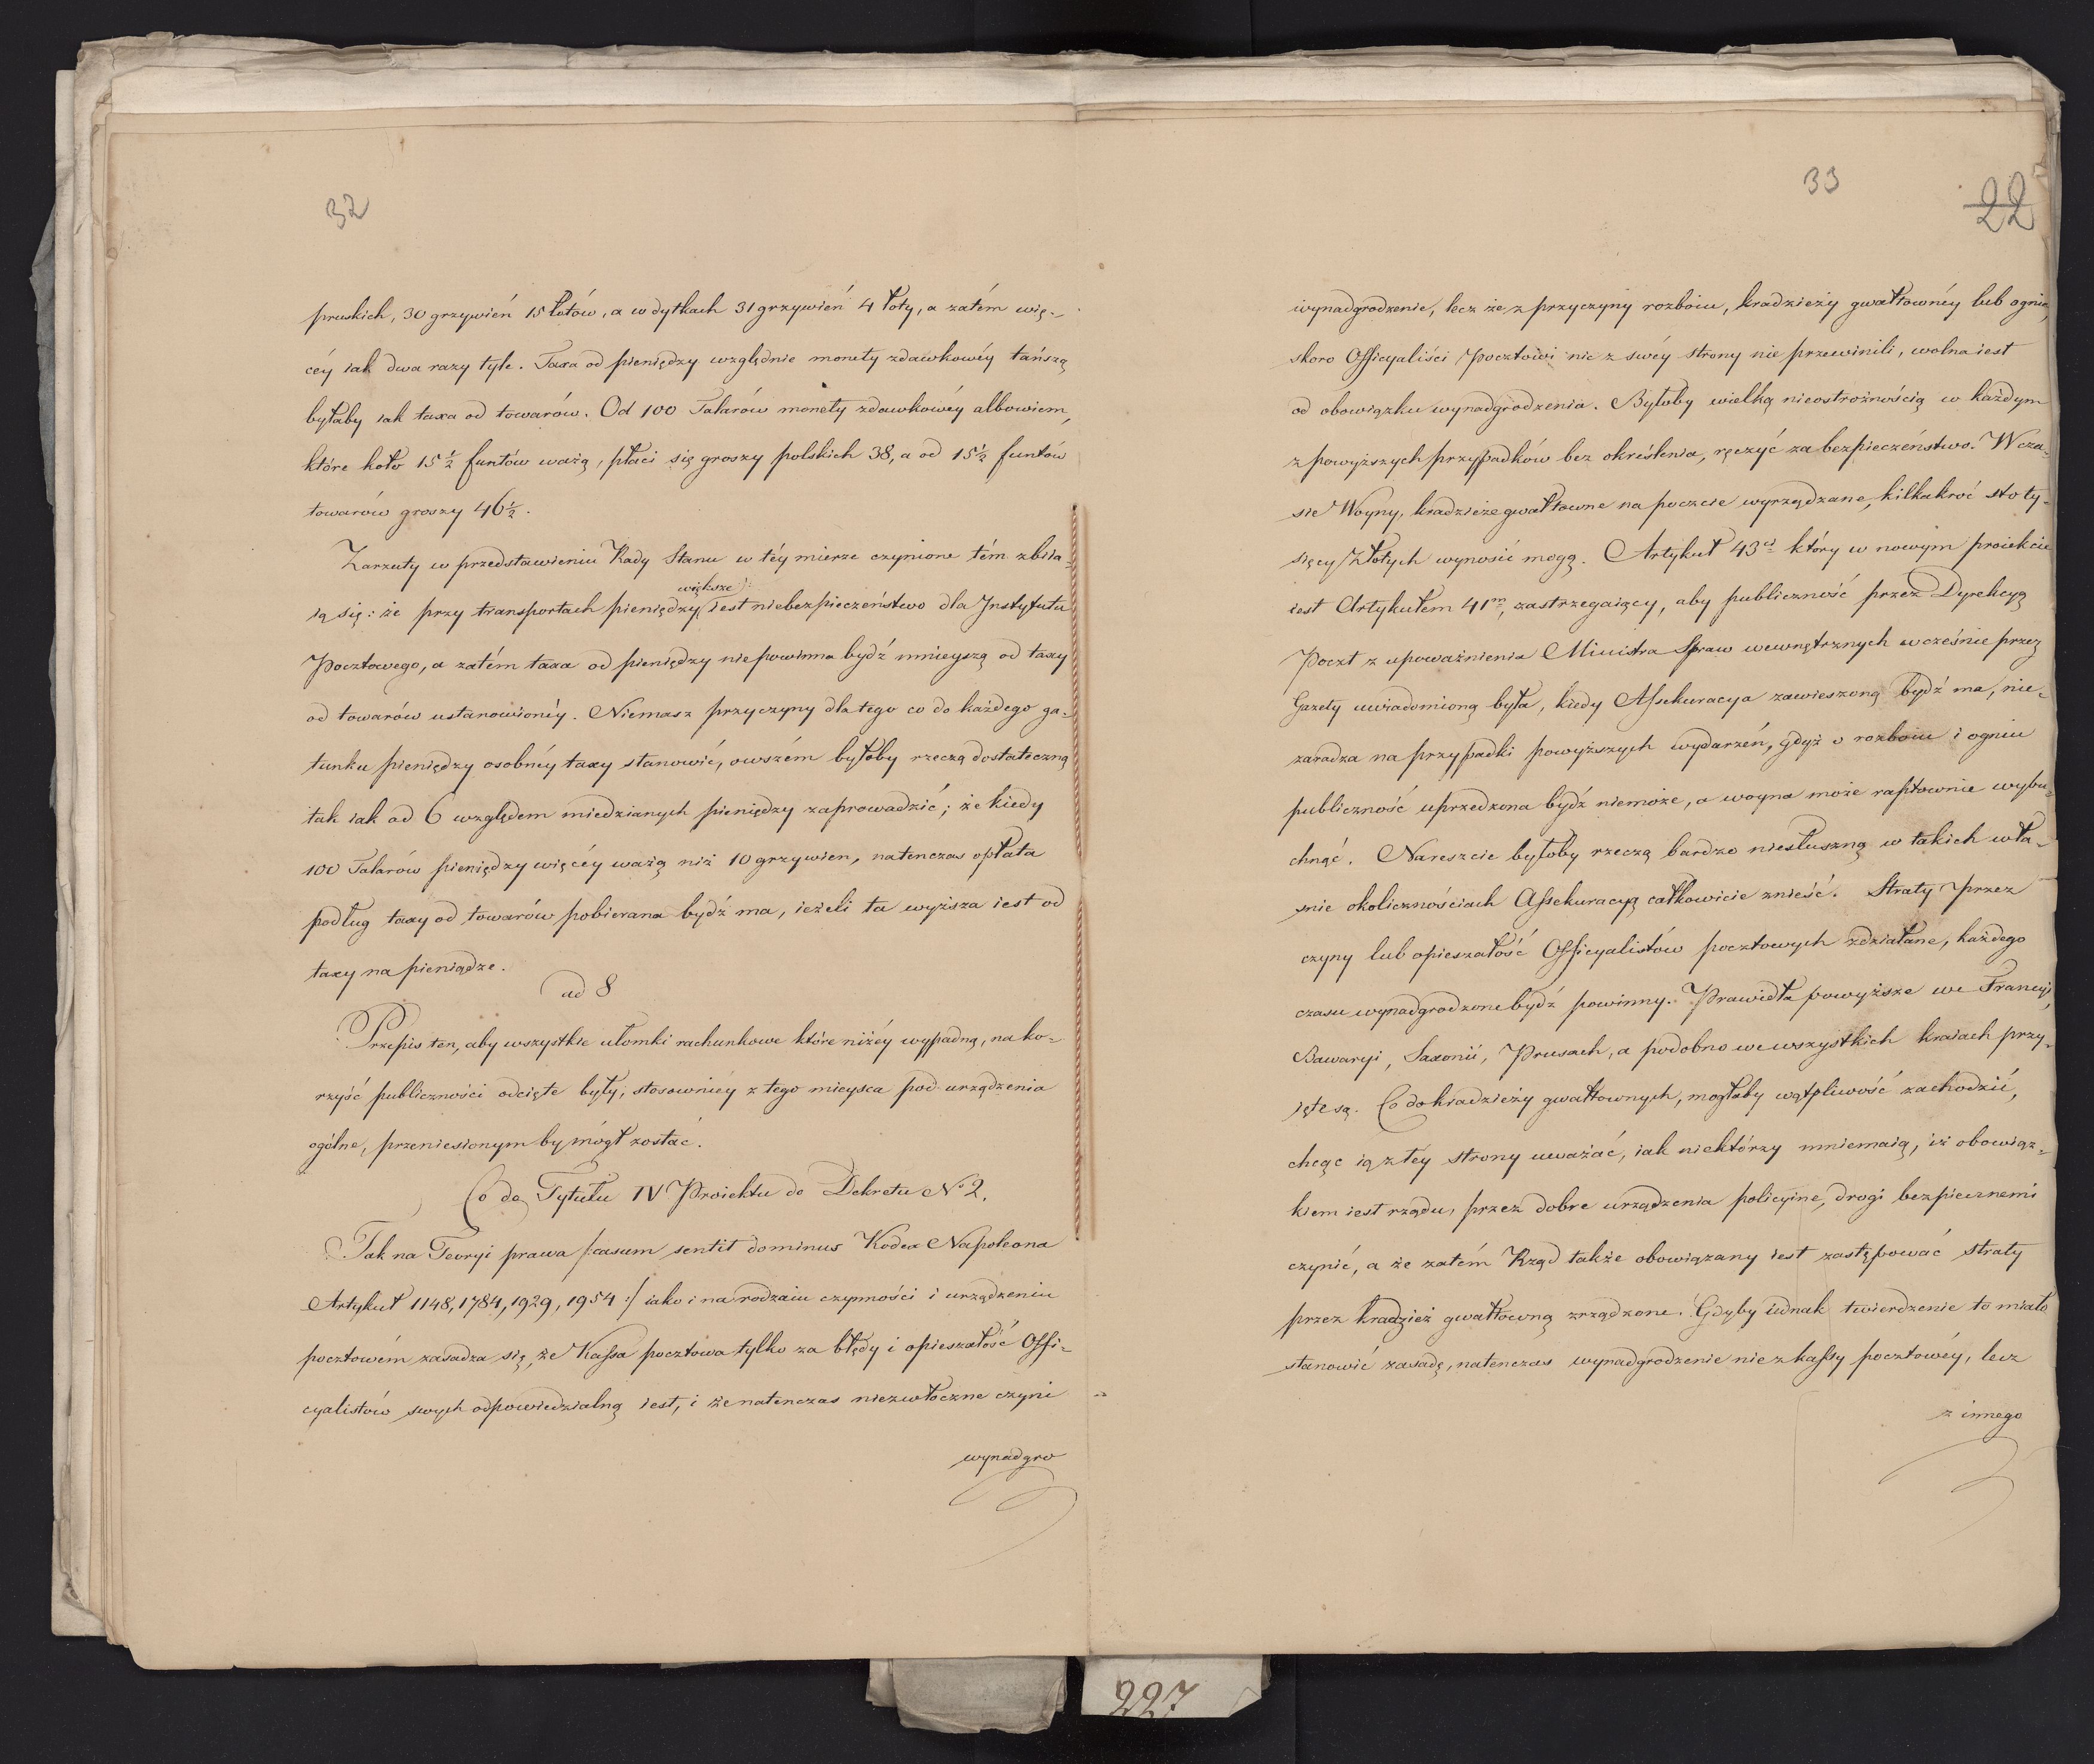 32
pruskich, 30 grzywień 15 łotów, a w dytkach 31 grzywień 4 łoty, a zatém wię-
céy iak dwa razy tyle. Taxa od pieniędzy względnie monety zdawkowéy tańszą
byłaby iak taxa od towarów. Od 100 Talarów monety zdawkowéy albowiem,
które koło 15 ½ funtów ważą, płaci się groszy polskich 38, a od 15 ½ funtów
towarów groszy 46 ½.
Zarzuty w przedstawieniu Rady Stanu w téy mierze czynione tém zbiia-
większe
ią się: że przy transportach pieniędzy iest niebezpieczeństwo dla Jnstytutu
Pocztowego, a zatém taxa od pieniędzy niepowinna bydź mnieyszą od taxy
od towarów ustanowionéy. Niemasz przyczyny dla tego co do każdego ga-
tunku pieniędzy osobnéy taxy stanowić, owszém byłoby rzeczą dostateczną
tak iak ad 6 względem miedzianych pieniędzy zaprowadzić; że kiedy
100 Talarów pieniędzy więcéy ważą niż 10 grzywien, natenczas opłata
podług taxy od towarów pobierana bydź ma, ieżeli ta wyższa iest od
taxy na pieniądze.
ad 8
Przepis ten, aby wszystkie ułomki rachunkowe które niżéy wypadną, na ko-
rzyść publiczności odcięte były, stosowniey z tego mieysca pod urządzenia
ogólne, przeniesionym by mógł zostać.
Co do Tytułu IV Proiektu do Dekretu No 2.
Jak na Teoryi prawa /: casum sentit dominus Kodex Napoleona
Artykuł 1148, 1784, 1929, 1954 :/ iako i na rodzaiu czynności i urządzeniu
pocztowém zasadza się, że Kassa pocztowa tylko za błędy i opieszałość Offi-
cyalistów swych odpowiedzialną iest, i że natenczas niezwłoczne czyni
wynadgro
33
22
wynadgrodzenie, lecz że z przyczyny rozboiu, kradzieży gwałtownéy lub ognia,
skoro Officyaliści Pocztowi nic z swéy strony nie przewinili, wolna iest
od obowiązku wynadgrodzenia. Byłoby wielką nieostrożnością w każdym
z powyższych przypadków bez określenia, ręczyć za bezpieczeństwo. W cza-
sie Woyny, kradzieże gwałtowne na poczcie wyrządzane, kilkakroć sto ty-
sięcy Złotych wynosić mogą. Artykuł 43ci który w nowym proiekcie
iest Artykułem 41m, zastrzegaiący, aby publiczność przez Dyrekcyą
Poczt z upoważnienia Ministra Spraw wewnętrznych wcześnie przez
Gazety uwiadomioną była, kiedy Assekuracya zawieszoną bydź ma, nie-
zaradza na przypadki powyższych wydarzeń, gdyż o rozboiu i ogniu
publiczność uprzedzona bydź niemoże, a woyna może raptownie wybu-
chnąć. Nareszcie byłoby rzeczą bardzo niesłuszną w takich wła-
snie okolicznościach Assekuracyą całkowicie znieść. Straty przez
czyny lub opieszałość Officyalistów pocztowych zdziałane, każdego
czasu wynadgrodzone bydź powinny. Prawidła powyższe we Francyi,
Bawaryi, Saxonii, Prusach, a podobno we wszystkich kraiach przy-
ięte są. Co do kradzieży gwałtownych, mogłaby wątpliwość zachodzić,
chcąc ią z téy strony uważać, iak niektórzy mniemaią, iż obowiąz-
kiem iest rządu, przez dobre urządzenia policyine, drogi bezpiecznemi
czynić, a że zatém Rząd także obowiązany iest zastępować straty
przez kradzież gwałtowną zrządzone. Gdyby iednak twierdzenie to miało
stanowić zasadę, natenczas wynadgrodzenie nie z kassy pocztowéy, lecz
z innego
227